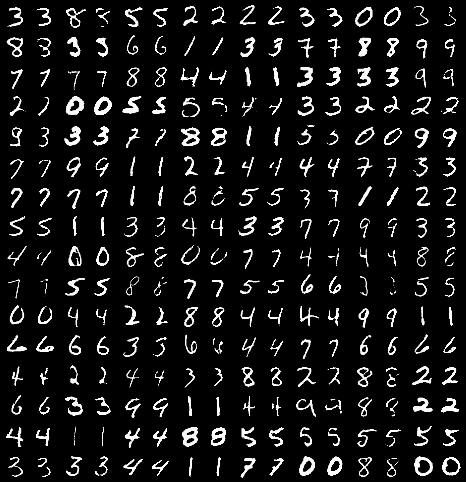 3 3 8 8 5 5 2 2 2 2 3 3 0 0 3 3
8 8 3 3 6 6 1 1 3 3 7 7 8 8 9 9
7 7 7 7 8 8 4 4 1 1 3 3 3 3 9 9
2 2 0 0 5 5 5 5 4 4 3 3 2 2 2 2
9 3 3 3 7 7 8 8 1 1 5 5 0 0 9 9
7 7 9 9 1 1 2 2 4 4 4 4 7 7 3 3
7 7 7 7 1 1 8 8 5 5 3 7 1 1 2 2
5 5 1 1 3 3 4 4 3 3 7 7 9 9 3 3
4 4 0 0 8 8 0 0 7 7 4 4 4 4 8 8
7 7 5 5 8 8 7 7 5 5 6 6 3 3 5 5
0 0 4 4 2 2 8 8 4 4 4 4 9 9 1 1
6 6 6 6 3 3 6 6 4 4 7 7 6 6 6 6
4 4 2 2 4 4 3 3 8 8 2 2 8 8 2 2
6 6 3 3 9 9 1 1 4 4 9 9 8 8 2 2
4 4 1 1 4 4 8 8 5 5 5 5 5 5 5 5
3 3 3 3 4 4 1 1 7 7 0 0 8 8 0 0